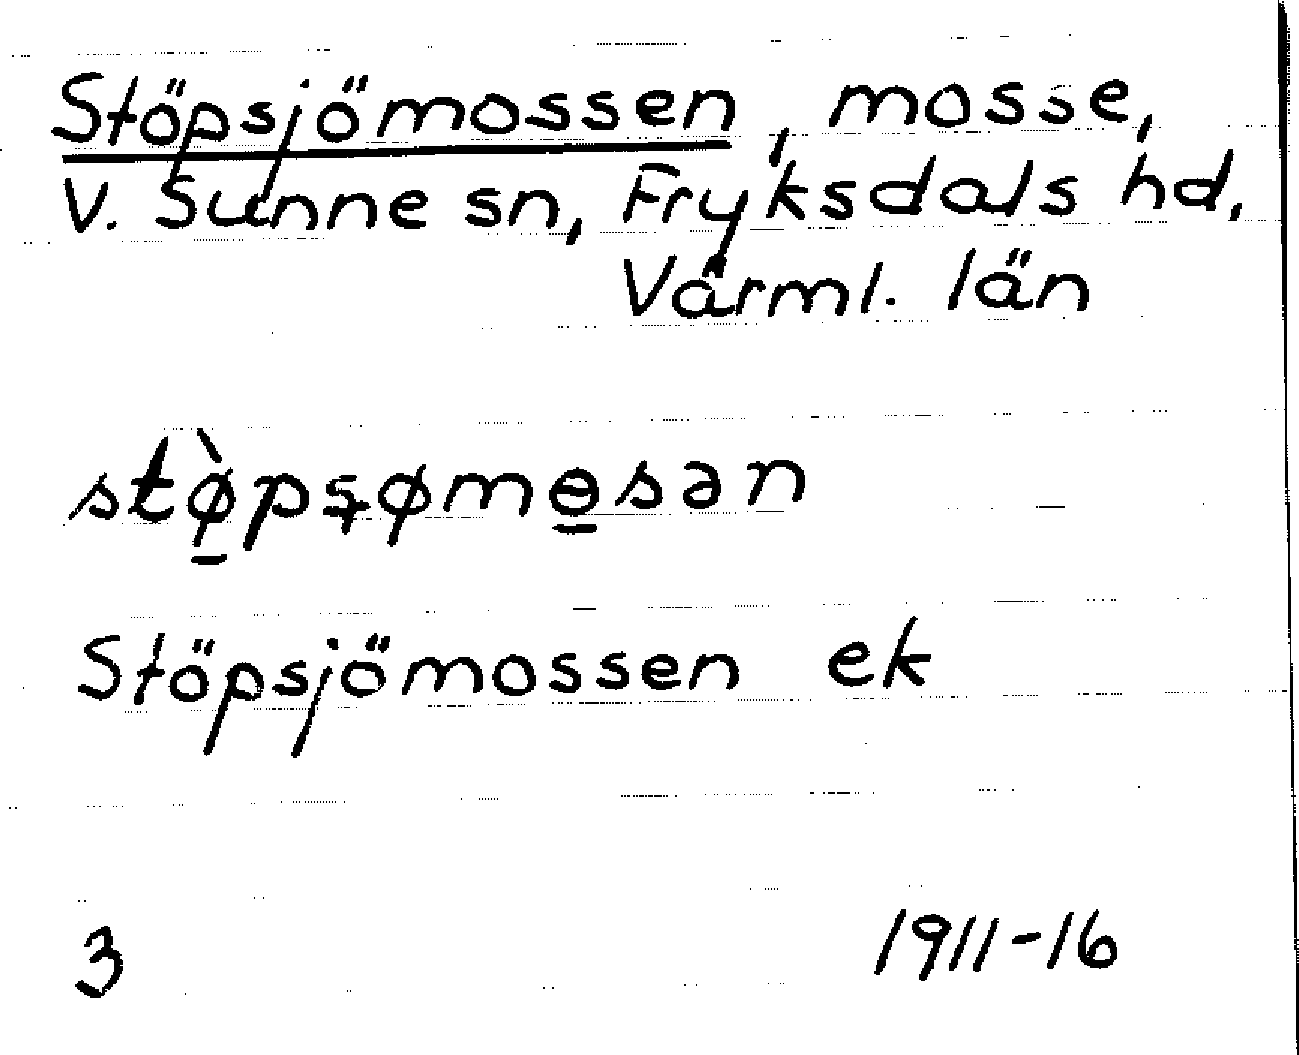 Stöpsjömossen, mosse,
V. Sunne sn, Fryksdals hd,
Värml. län
stø̱̀psɟømɵ̱sən
Stöpsjömossen ek
3 1911-16